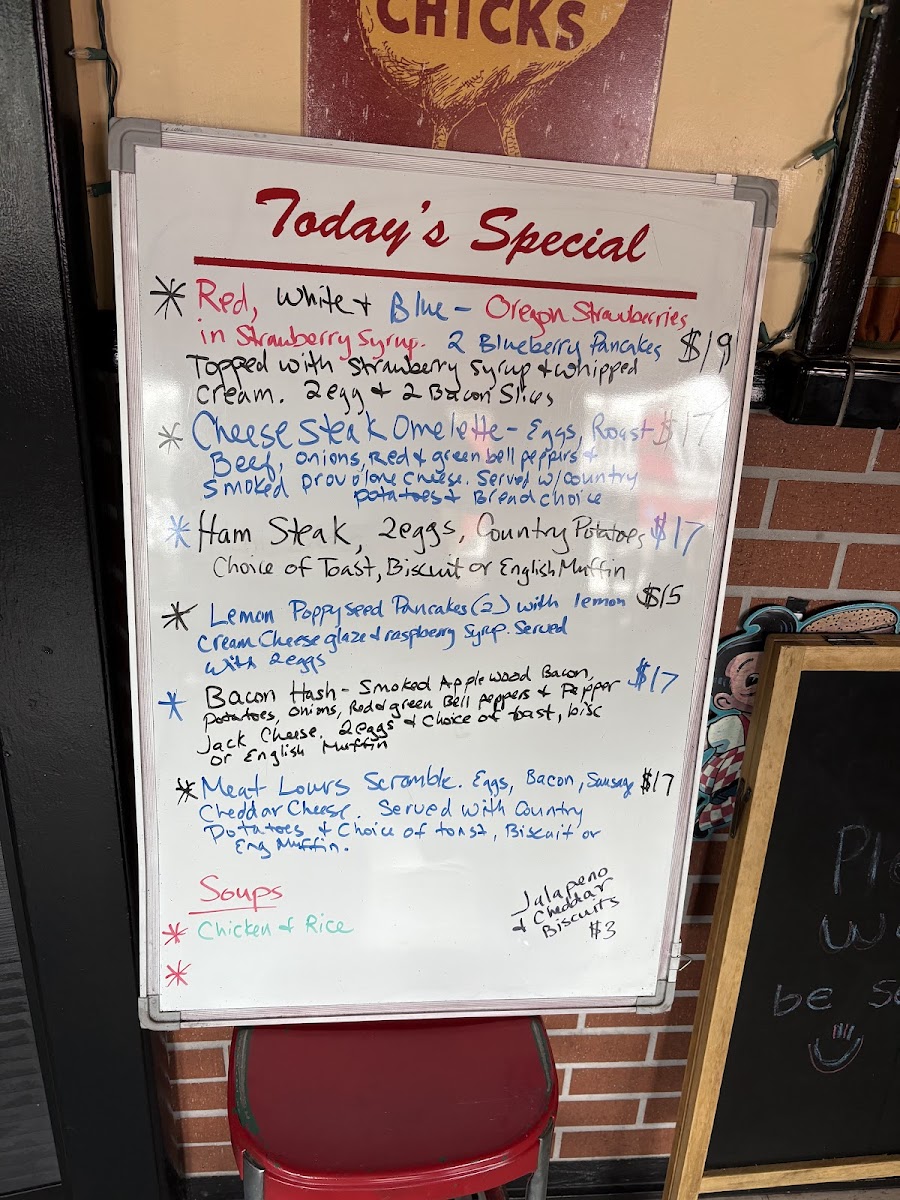 CHICKS
Today's Special
* Red, White & Blue - Oregon Strawberries
in Strawberry Syrup. 2 Blueberry Pancakes $19
Topped with strawberry syrup & whipped
cream. 2egg & 2 Bacon Slices
* Cheese Steak Omelette - Eggs, Roast $17
Beef, onions, Red & green bell peppers &
smoked provolone cheese. Served w/country
potatoes & Bread choice
* Ham Steak, 2eggs, Country Potatoes $17
Choice of Toast, Biscuit or English Muffin
* Lemon Poppyseed Pancakes (2) with lemon $15
cream cheese glaze & raspberry syrup. Served
with 2eggs
* Bacon Hash - Smoked Applewood Bacon, $17
potatoes, onions, Red & green Bell peppers & Pepper
Jack Cheese. 2eggs & choice of toast, bisc
or English Muffin
* Meat Lovrs Scramble. Eggs, Bacon, Sausag $17
Cheddar Cheese. Served with Country
Potatoes & Choice of toast, Biscuit or
Eng Muffin.
Soups
* Chicken & Rice
*
Jalapeno
& Cheddar
Biscuits
$3
be